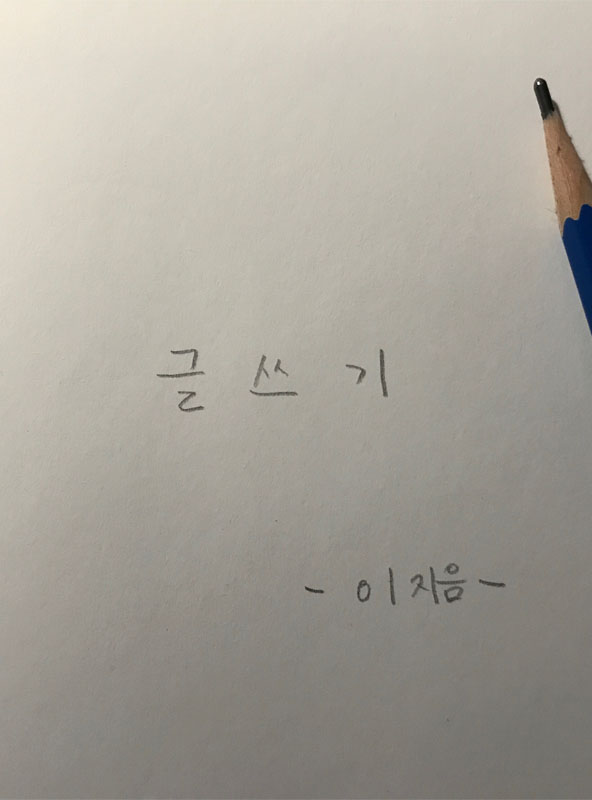 글 쓰 기
- 이지음 -